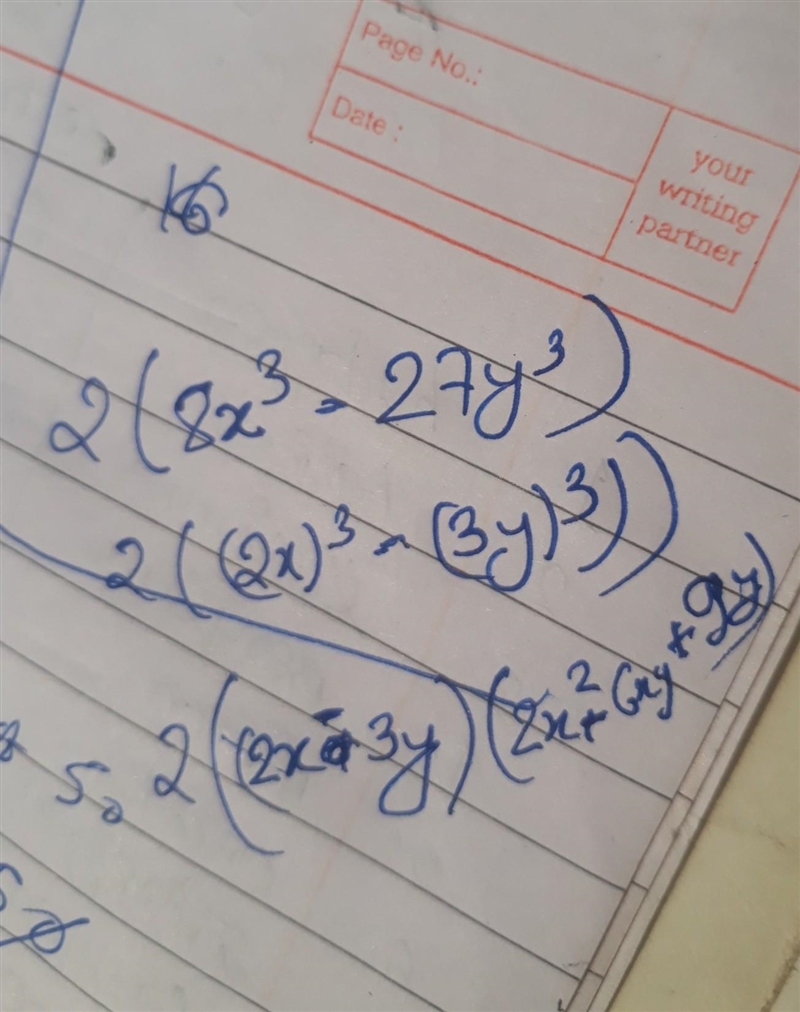 Page No.:
Date :
your
writing
partner
16
2(8x³ - 27y³)
2((2x)³ - (3y)³))
2(2x - 3y)(2x² + 6xy + 9y)
50